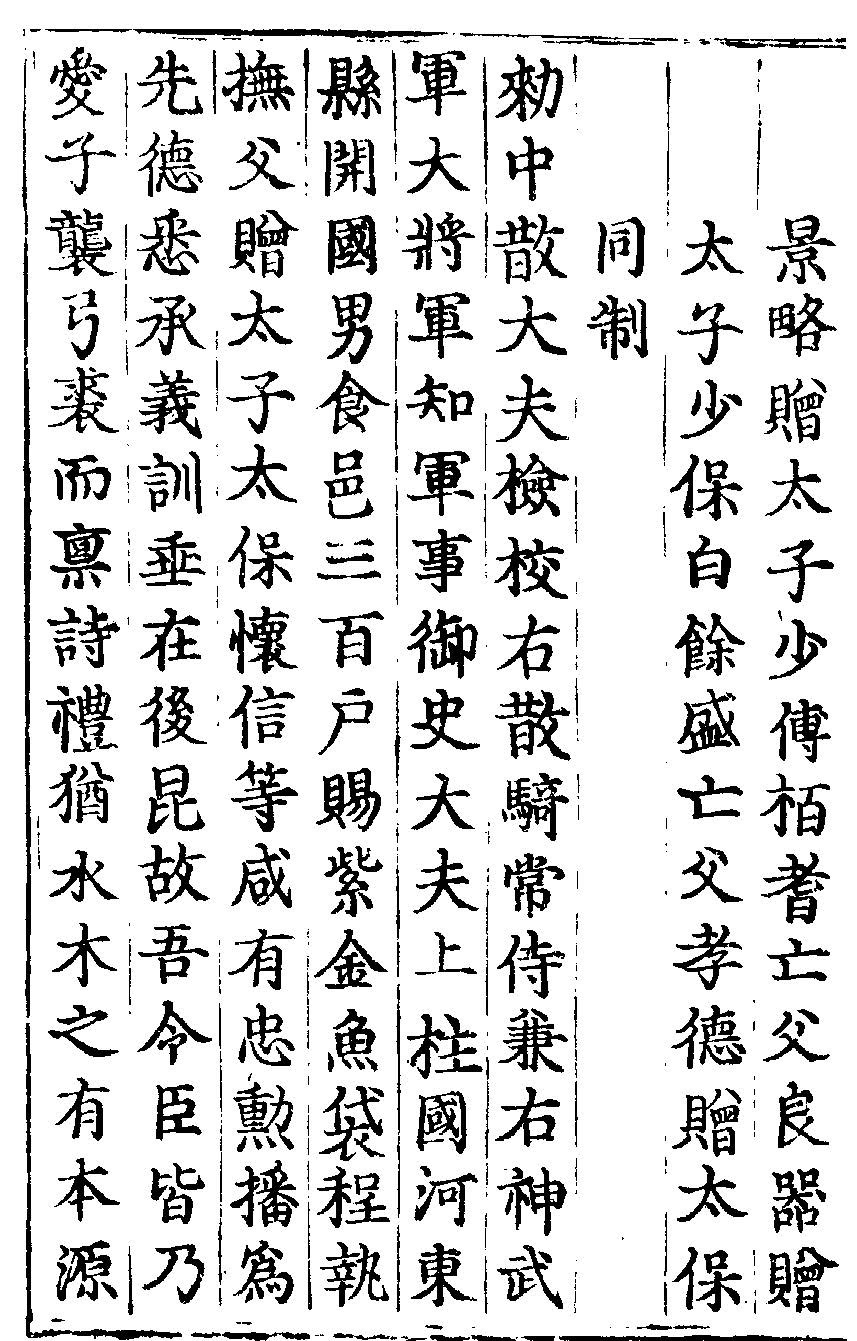 景略贈太子少傅栢耆亡父良器贈
太子少保白餘盛亡父孝德贈太保
同制
勑中散大夫檢校右散騎常侍兼右神武
軍大將軍知軍事御史大夫上柱國河東
縣開國男食邑三百户賜紫金魚袋程執
撫父贈太子太保懷信等咸有忠勳播爲
先德悉承義訓垂在後昆故吾令臣皆乃
愛子襲弓裘而禀詩禮猶水木之有本源